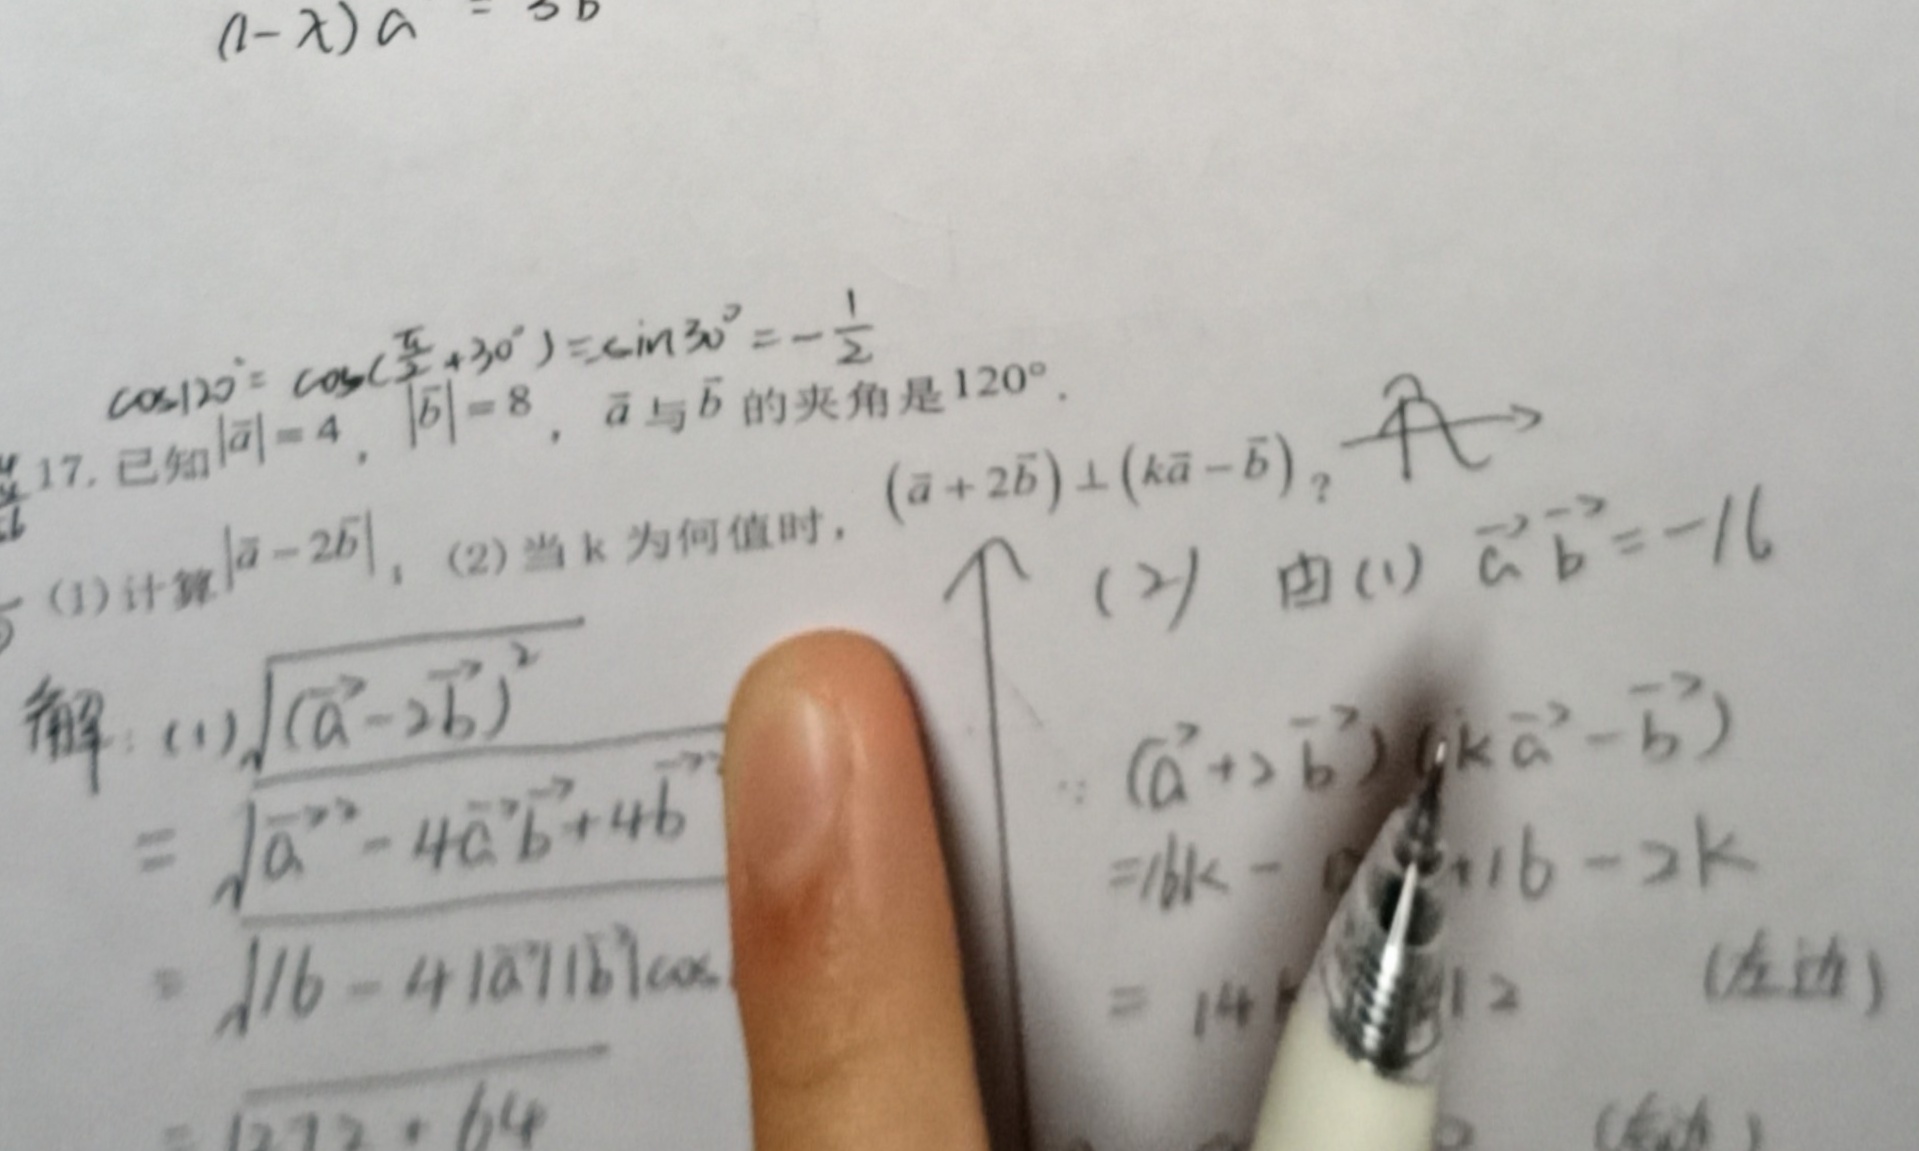 (1-λ)a = 3b
cos120°= cos(π/2+30°)=sin30°=-1/2
17. 已知|a̅|=4, |b̅|=8, a̅与b̅的夹角是120°.
(1)计算|a̅-2b̅|, (2)当k为何值时, (a̅+2b̅)⊥(ka̅-b̅)?
解:(1)√(a⃗-2b⃗)²
=√a⃗²-4a⃗b⃗+4b⃗
=√16-4|a⃗||b⃗|cos
=√272+64
(2) 由(1) a⃗b⃗=-16
∵(a⃗+2b⃗)(ka⃗-b⃗)
=16k- +16-2k
=14 12 (左边)